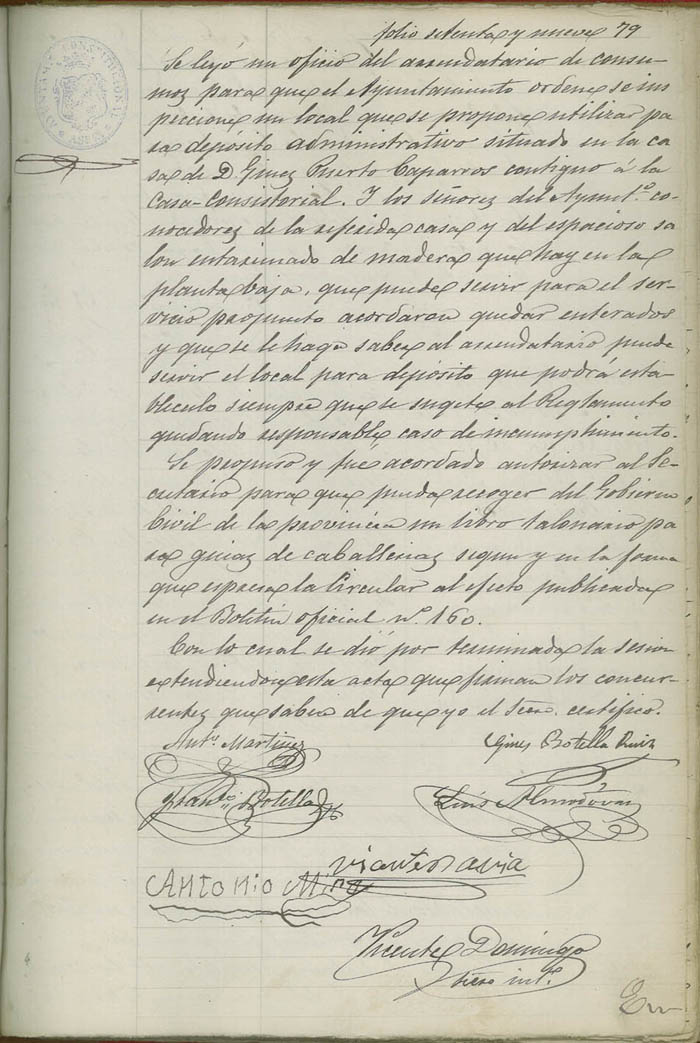 folio setenta y nueve 79
AYUNTAMIENTO CONSTITUCIONAL
ASPE
Se leyó un oficio del arrendatario de consu-
mos para que el Ayuntamiento ordene se ins
peccione un local que se propone utilizar pa
ra depósito administrativo situado en la ca
sa de D. Ginez Puerto Caparros contiguo á la
Casa-Consistorial. Y los señores del Ayunt.º co-
nocedores de la referida casa y del espacioso sa
lon entarimado de madera que hay en la
planta baja, que puede servir para el ser-
vicio propuesto acordaron quedar enterados
y que se le haga saber al arrendatario puede
servir el local para depósito que podrá esta-
blecerlo siempre que se sugete al Reglamento
quedando responsable caso de incumplimiento.
Se propuso y fué acordado autorizar al Se-
cretario para que pueda recoger del Gobierno
Civil de la provincia un libro talonario pa
ra guias de caballerias segun y en la forma
que espresa la Circular al efecto publicada
en el Boletin oficial nº. 160.
Con lo cual se dió por terminada la sesion
extendiendose esta acta que firman los concur-
rentes que saben de que yo el Srio. certifico.
Antº. Martinez
Gines Botella Ruiz
Botella
Luis Almodóvar
Vicente Pavia
Antonio Mira
Vicente Domingo
Srio intº.
En